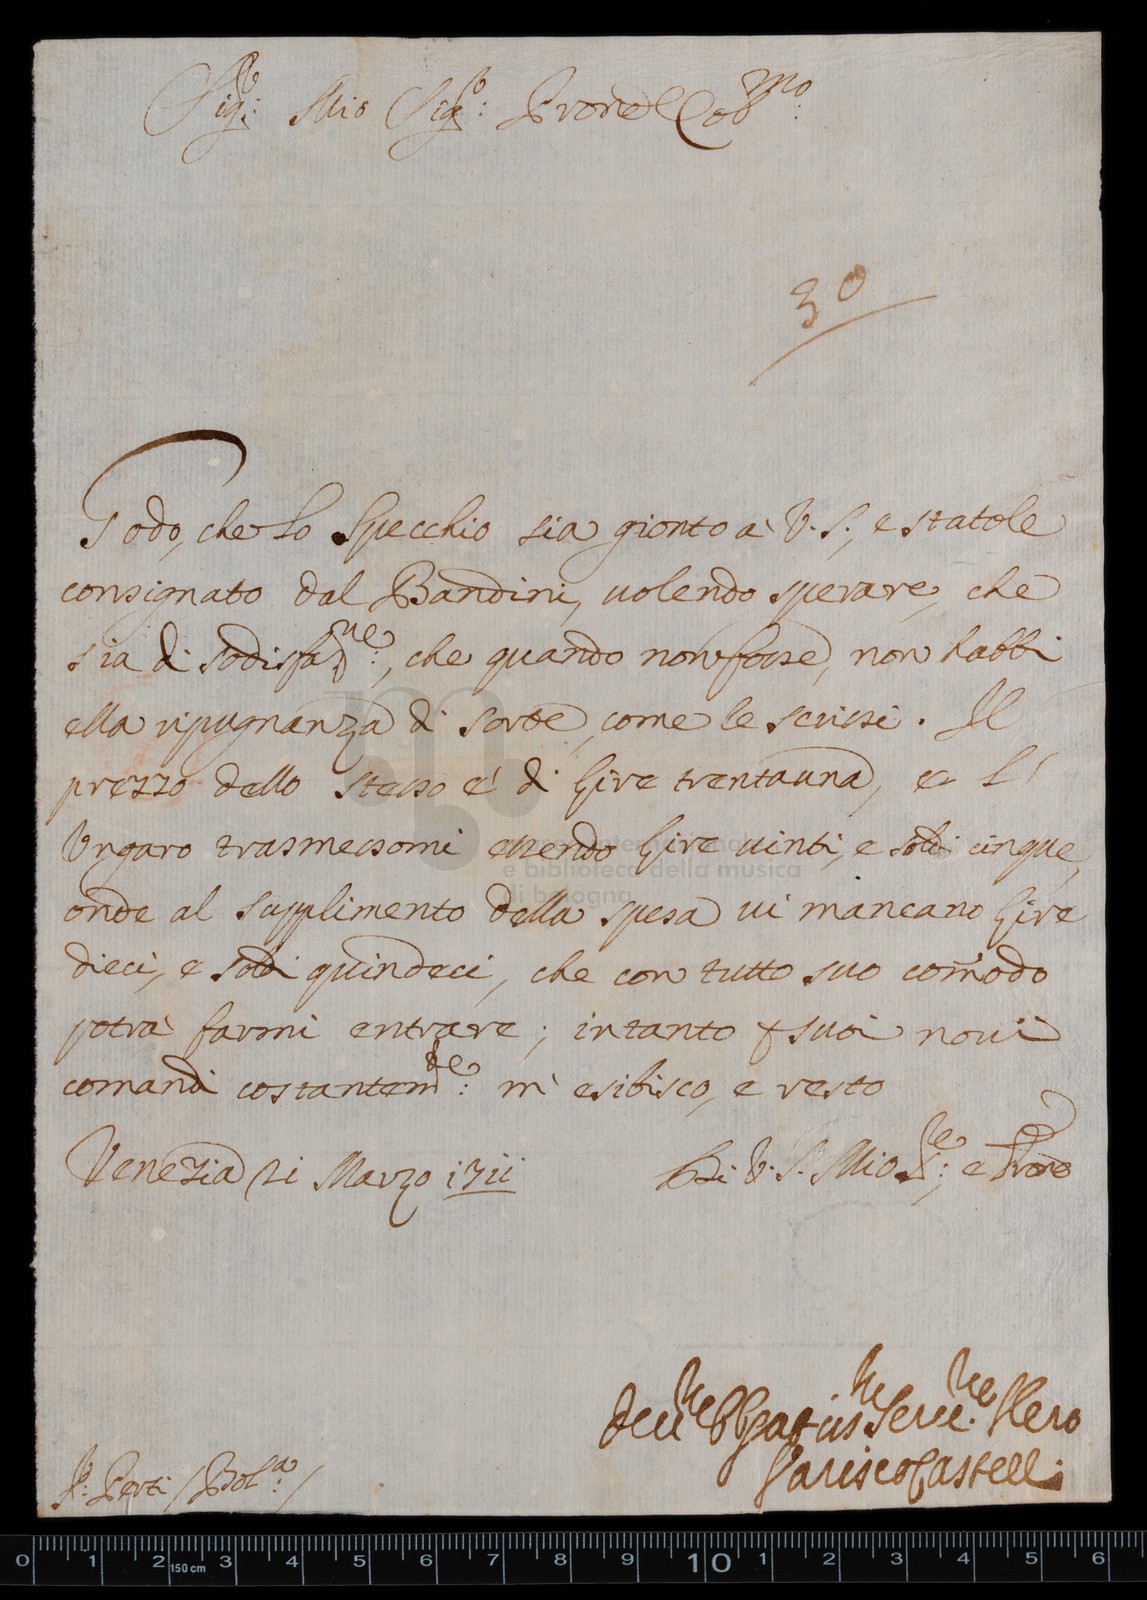 Sig:r Mio Sig:r Prone Cob:mo
30
Godo, che lo Specchio sia gionto à V. S., e statole
consignato dal Bandini, uolendo sperare, che
sia di sodisfa:ne, che quando non fosse, non habbi
ella ripugnanza di sorte, come le scrissi. Il
prezzo dello stesso è di lire trentauna, e l'
Vngaro trasmessomi essendo lire uinti, e soldi cinque,
onde al supplimento della spesa ui mancano lire
dieci, e soldi quindeci, che con tutto suo comodo
potrà farmi entrare; intanto p suoi noui
comandi costantem:te m'esibisco, e resto
Venezia 21 Marzo 1711
Di V. S. Mio Sig:re, e Prone
museo internazionale
e biblioteca della musica
di bologna
Deu:mo Obligatis:mo Seruit:re Vero
Parisco Castelli
Sr: Perti / Bol:a /
0 1 2 150 cm 3 4 5 6 7 8 9 10 1 2 3 4 5 6